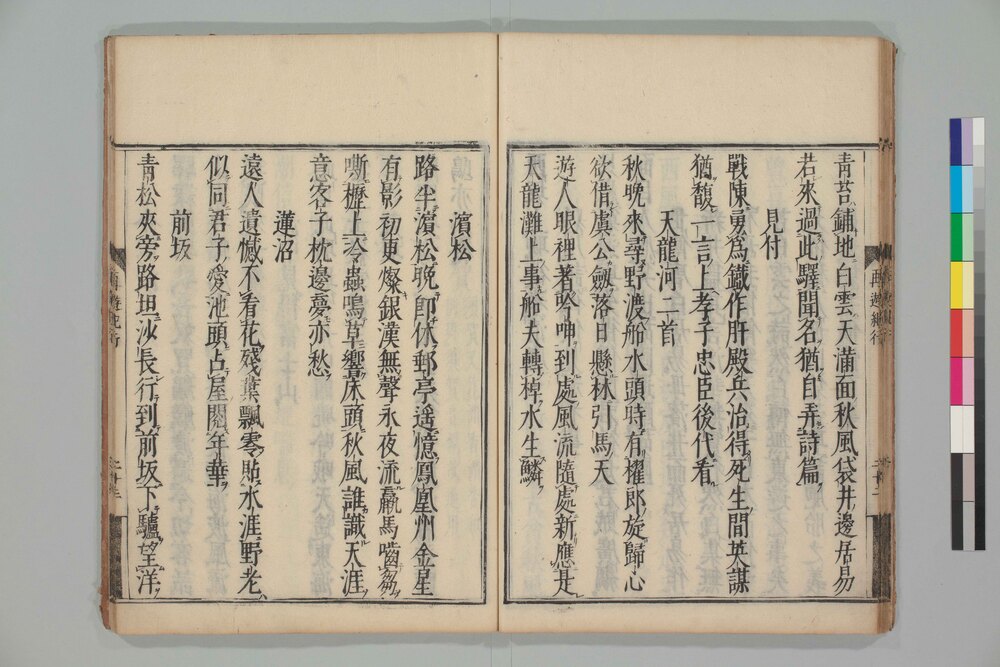 青苔鋪地白雲天滿面秋風袋井邊居易
若來過此驛聞名猶自弄詩篇
見付
戰陳勇爲鐵作肝殿兵治得死生間英謀
猶馥一言上孝子忠臣後代看
天龍河二首
秋晚來尋野渡船水頭時有櫂郎旋歸心
欲借虞公劔落日懸林引馬天
遊人眼裡著呻到處風流隨處新應是
天龍灘上事船夫轉棹水生鱗
濱松
路半濱松晚卽休郵亭遥憶鳳凰州金星
有影初更燦銀漢無聲永夜流羸馬嚙芻
嘶櫪上冷蟲鳴草響床頭秋風誰識天涯
意客子枕邊夢亦愁
蓮沼
遠人遺憾不看花殘葉飄零貼水涯野老
似同君子愛池頭占屋閱年華
前坂
青松夾旁路坦沙長行到前坂下驢望洋